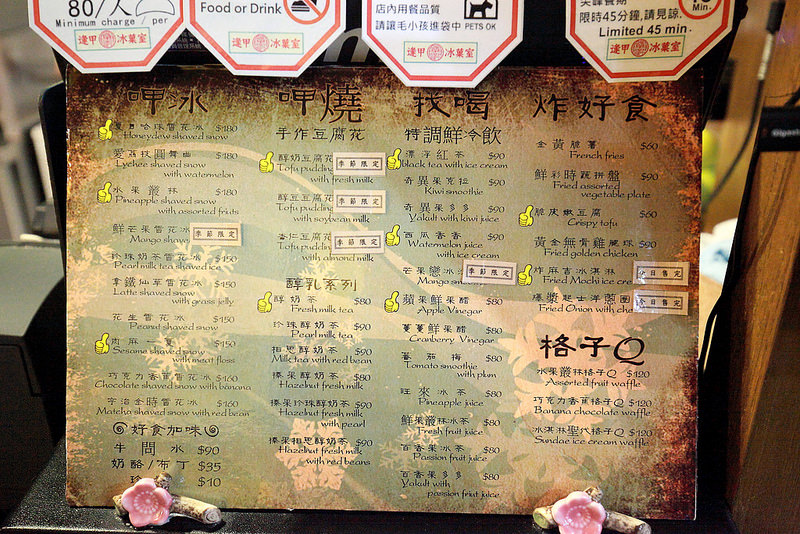 80/人
Minimum charge / per
逢甲 冰菓室
Food or Drink
逢甲 冰菓室
店內用餐品質
請讓毛小孩進袋中 PETS OK
逢甲 冰菓室
尖峰餐期
限時45分鐘,請見諒.
Limited 45 min.
Min.
逢甲 冰菓室
呷冰
夏月哈珠雪花冰 $180
Honeydew shaved snow
愛荔枝圓舞曲 $180
Lychee shaved snow
with watermelon
水果叢林 $180
Pineapple shaved snow
with assorted friuts
鮮芒果雪花冰
季節限定
Mango shave
珍珠奶茶雪花冰 $150
Pearl milk tea shaved ice
拿鐵仙草雪花冰 $150
Latte shaved snow
with grass jelly
花生雪花冰 $150
Peanut shaved snow
肉麻一夏 $150
Sesame shaved snow
with meat floss
巧克力香蕉雪花冰 $160
Chocolate shaved snow with banana
宇治金時雪花冰 $160
Matcha shaved snow with red bean
好食加味
牛問冰 $90
奶酪/布丁 $35
珍 $10
呷燒
手作豆腐花
醇奶豆腐花
季節限定
Tofu pudding
with fresh milk
醇豆豆腐花
季節限定
Tofu pudding
with soybean milk
杏仁豆腐花
季節限定
Tofu pudding
with almond milk
醇乳系列
醇奶茶 $80
Fresh milk tea
珍珠醇奶茶 $90
Pearl milk tea
相思醇奶茶 $90
Milk tea with red bean
榛果醇奶茶 $80
Hazelnut fresh milk
榛果珍珠醇奶茶 $90
Hazelnut fresh milk
with pearl
榛果相思醇奶茶 $90
Hazelnut fresh milk
with red beans
找喝
特調鮮冷飲
漂浮紅茶 $90
black tea with ice cream
奇異果克拉 $90
Kiwi smoothie
奇異果多多 $90
Yakult with kiwi juice
西瓜香香 $90
Watermelon juice
with ice cream
芒果戀冰
季節限定
Mango smoo
蘋果鮮果醋 $80
Apple Vinegar
蔓蔓鮮果醋 $80
Cranberry Vinegar
蕃茄梅 $80
Tomato smoothie
with plum
旺來冰茶 $80
Pineapple juice
鮮果叢林冰茶 $80
Fresh fruit juice
百香果冰茶 $80
Passion fruit juice
百香果多多 $80
Yakult with
passion friut juice
炸好食
金黃脆薯 $60
French fries
鮮彩時蔬拼盤 $90
Fried assorted
vegetable plate
脆皮嫩豆腐 $60
Crispy tofu
黃金無骨雞脆球 $90
Fried golden chicken
炸麻吉冰淇淋
今日售完
Fried Mochi ice cre
爆漿起士洋蔥圈
今日售完
Fried Onion with che
格子Q
水果叢林格子Q $120
Assorted fruit waffle
巧克力香蕉格子Q $120
Banana chocolate waffle
冰淇淋聖代格子Q $120
Sundae ice cream waffle
Gigast